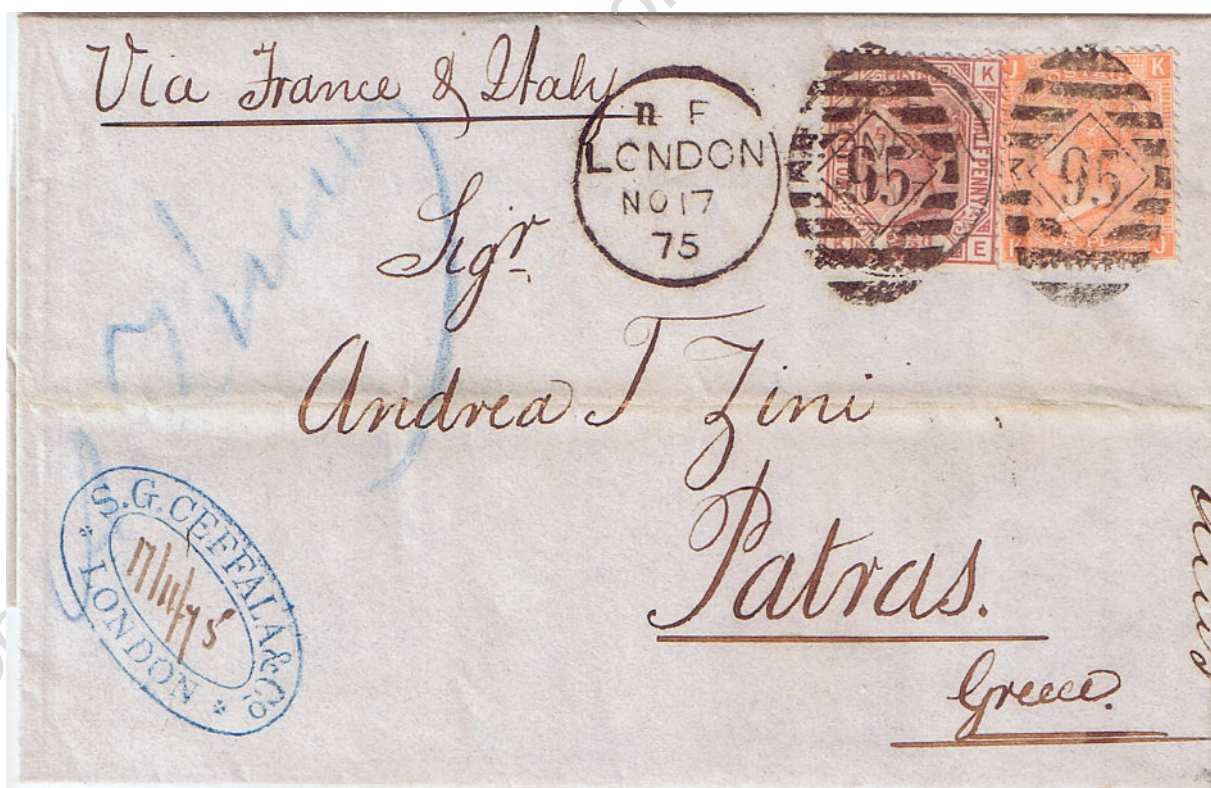 Via France & Italy
n F
LONDON
NO 17
75
95
95
J K
K
E
J
Sigr
Andrea T Zini
Patras.
Greece.
S. G. CEFFALA & Co
LONDON
17/11/75